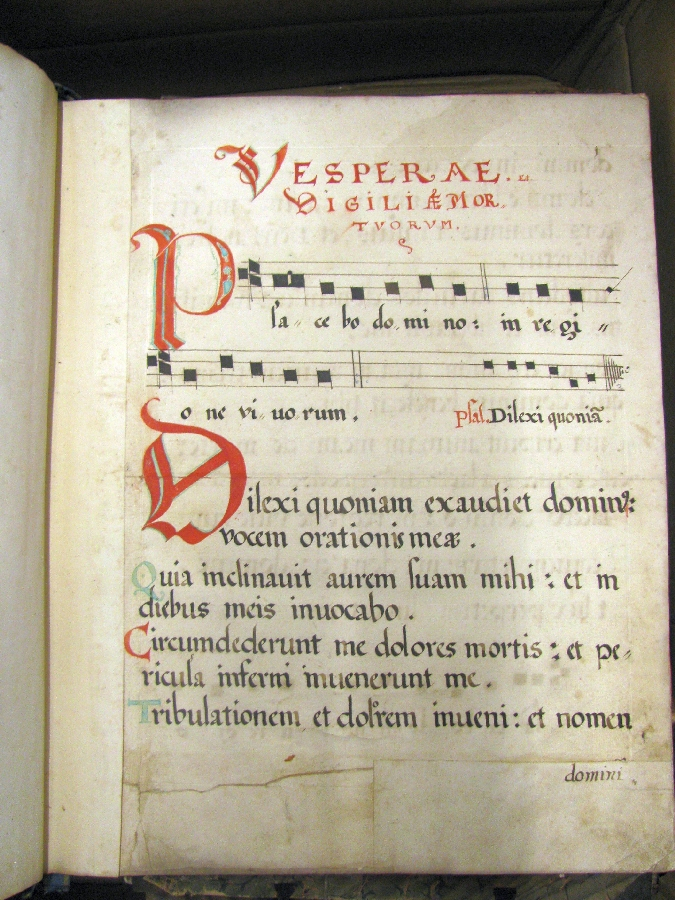 VESPERAE. Et
VIGILIÆ MOR
TVORVM.
Pla- ce bo do mi no: in re gi -
o ne vi- uo rum. psal. Dilexi quoniã.
Dilexi quoniam exaudiet dominꝰ:
vocem orationis meæ.
Quia inclinauit aurem suam mihi: et in
diebus meis inuocabo.
Circumdederunt me dolores mortis: et pe-
ricula inferni inuenerunt me.
Tribulationem et dolorem inueni: et nomen
domini